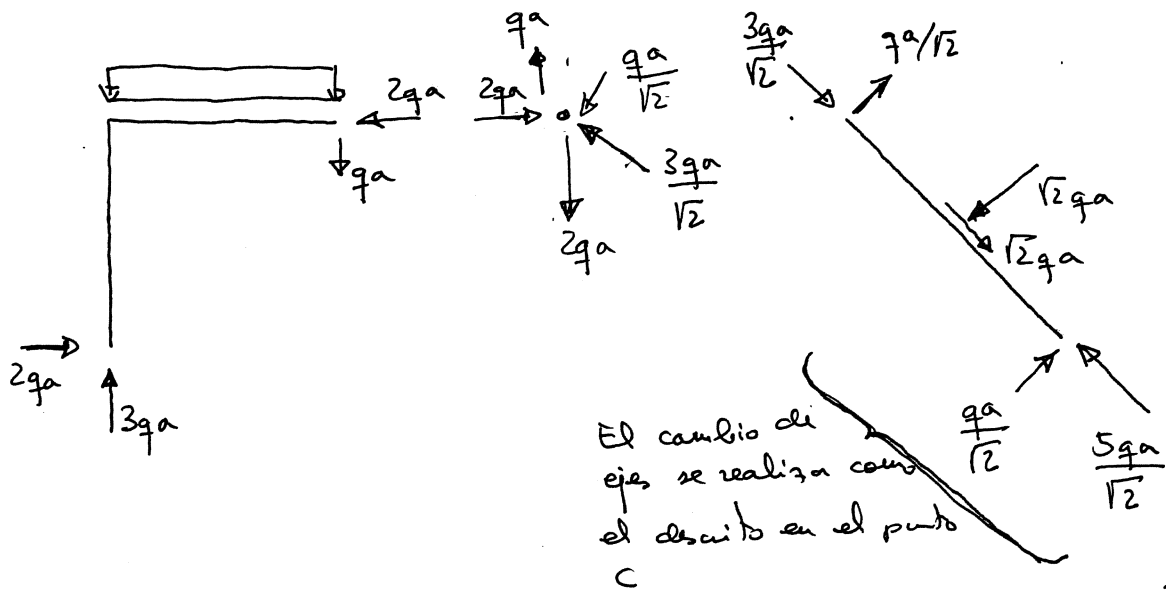 qa
2qa
2qa
qa/√2
3qa/√2
qa/√2
qa
3qa/√2
2qa
√2 qa
√2 qa
2qa
3qa
qa/√2
5qa/√2
El cambio de
ejes se realiza como
el descrito en el punto
C